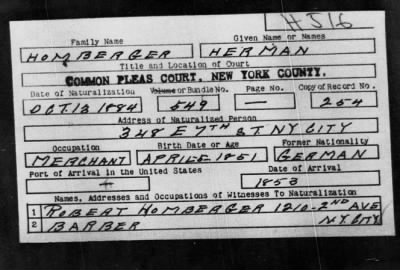 H 516
Family Name Given Name or Names
HOMBERGER HERMAN
Title and Location of Court
COMMON PLEAS COURT, NEW YORK COUNTY.
Date of Naturalization Volume or Bundle No. Page No. Copy of Record No.
OCT. 13 1884 549 — 254
Address of Naturalized Person
348 E 7TH ST NY CITY
Occupation Birth Date or Age Former Nationality
MERCHANT APRIL 6. 1851 GERMAN
Port of Arrival in the United States Date of Arrival
1853
Names, Addresses and Occupations of Witnesses To Naturalization
1 ROBERT HOMBERGER 1210-2ND AVE
2 BARBER N.Y. CITY